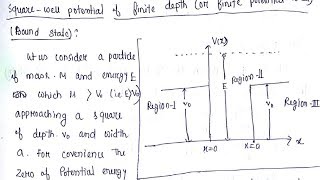 Square-well potential of finite depth (or finite potential
(Bound state)?
Let us consider a particle
of mass M and energy E
which M > V₀ (i.e E>V₀)
approaching a square
of depth V₀ and width
a. for covenience the
Zero of Potential energy
V(x)
E
E
Region-II
Region-I
V₀
V₀
Region-III
x=0
x=0
x